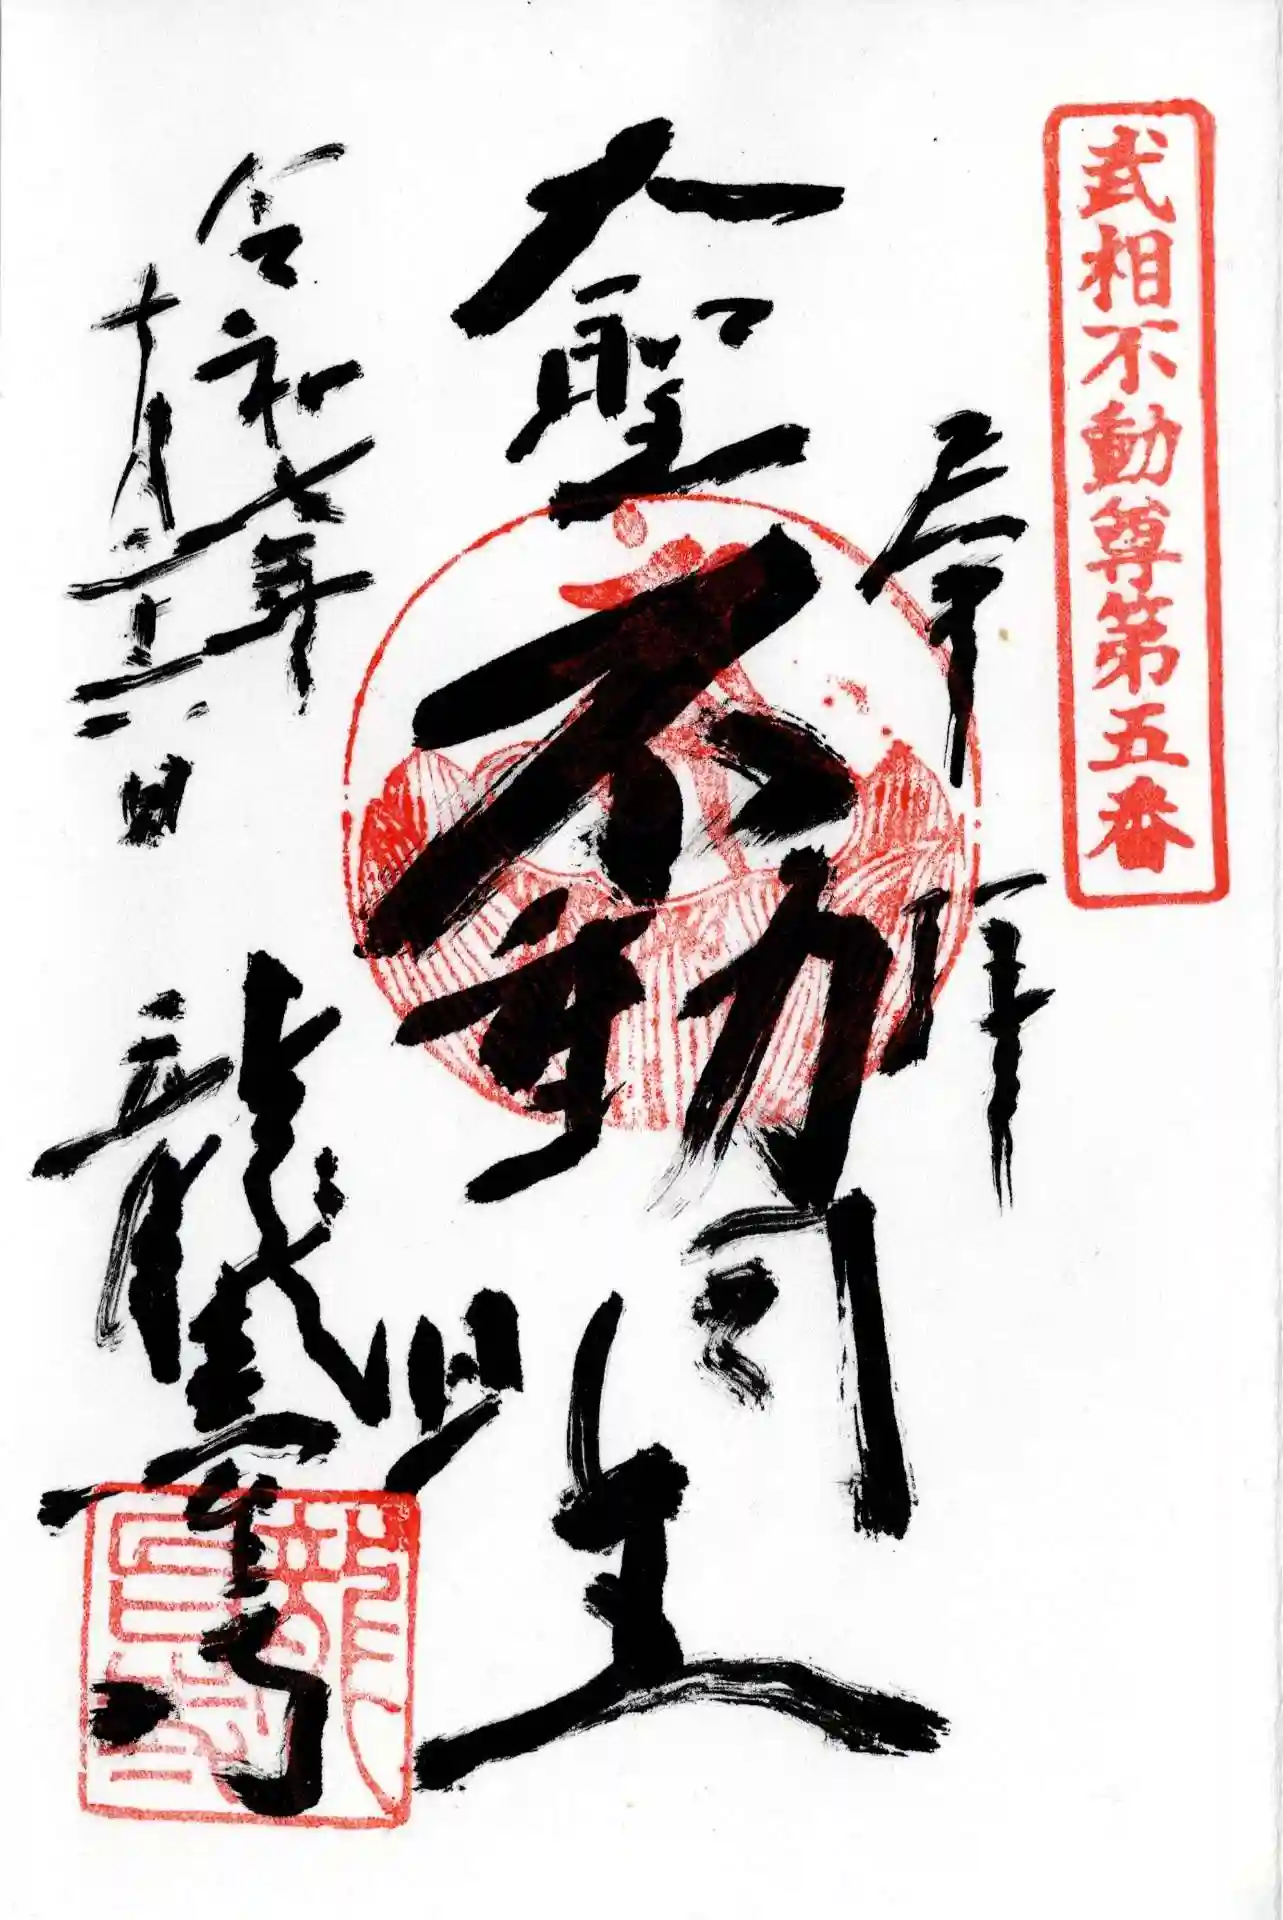 武相不動尊第五番
奉拝
大聖不動明王
令和七年
十月二十六日
龍臺寺